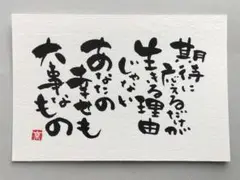 期待に
応えるだけが
生きる理由
じゃない
あなたの
幸せも
大事な
もの